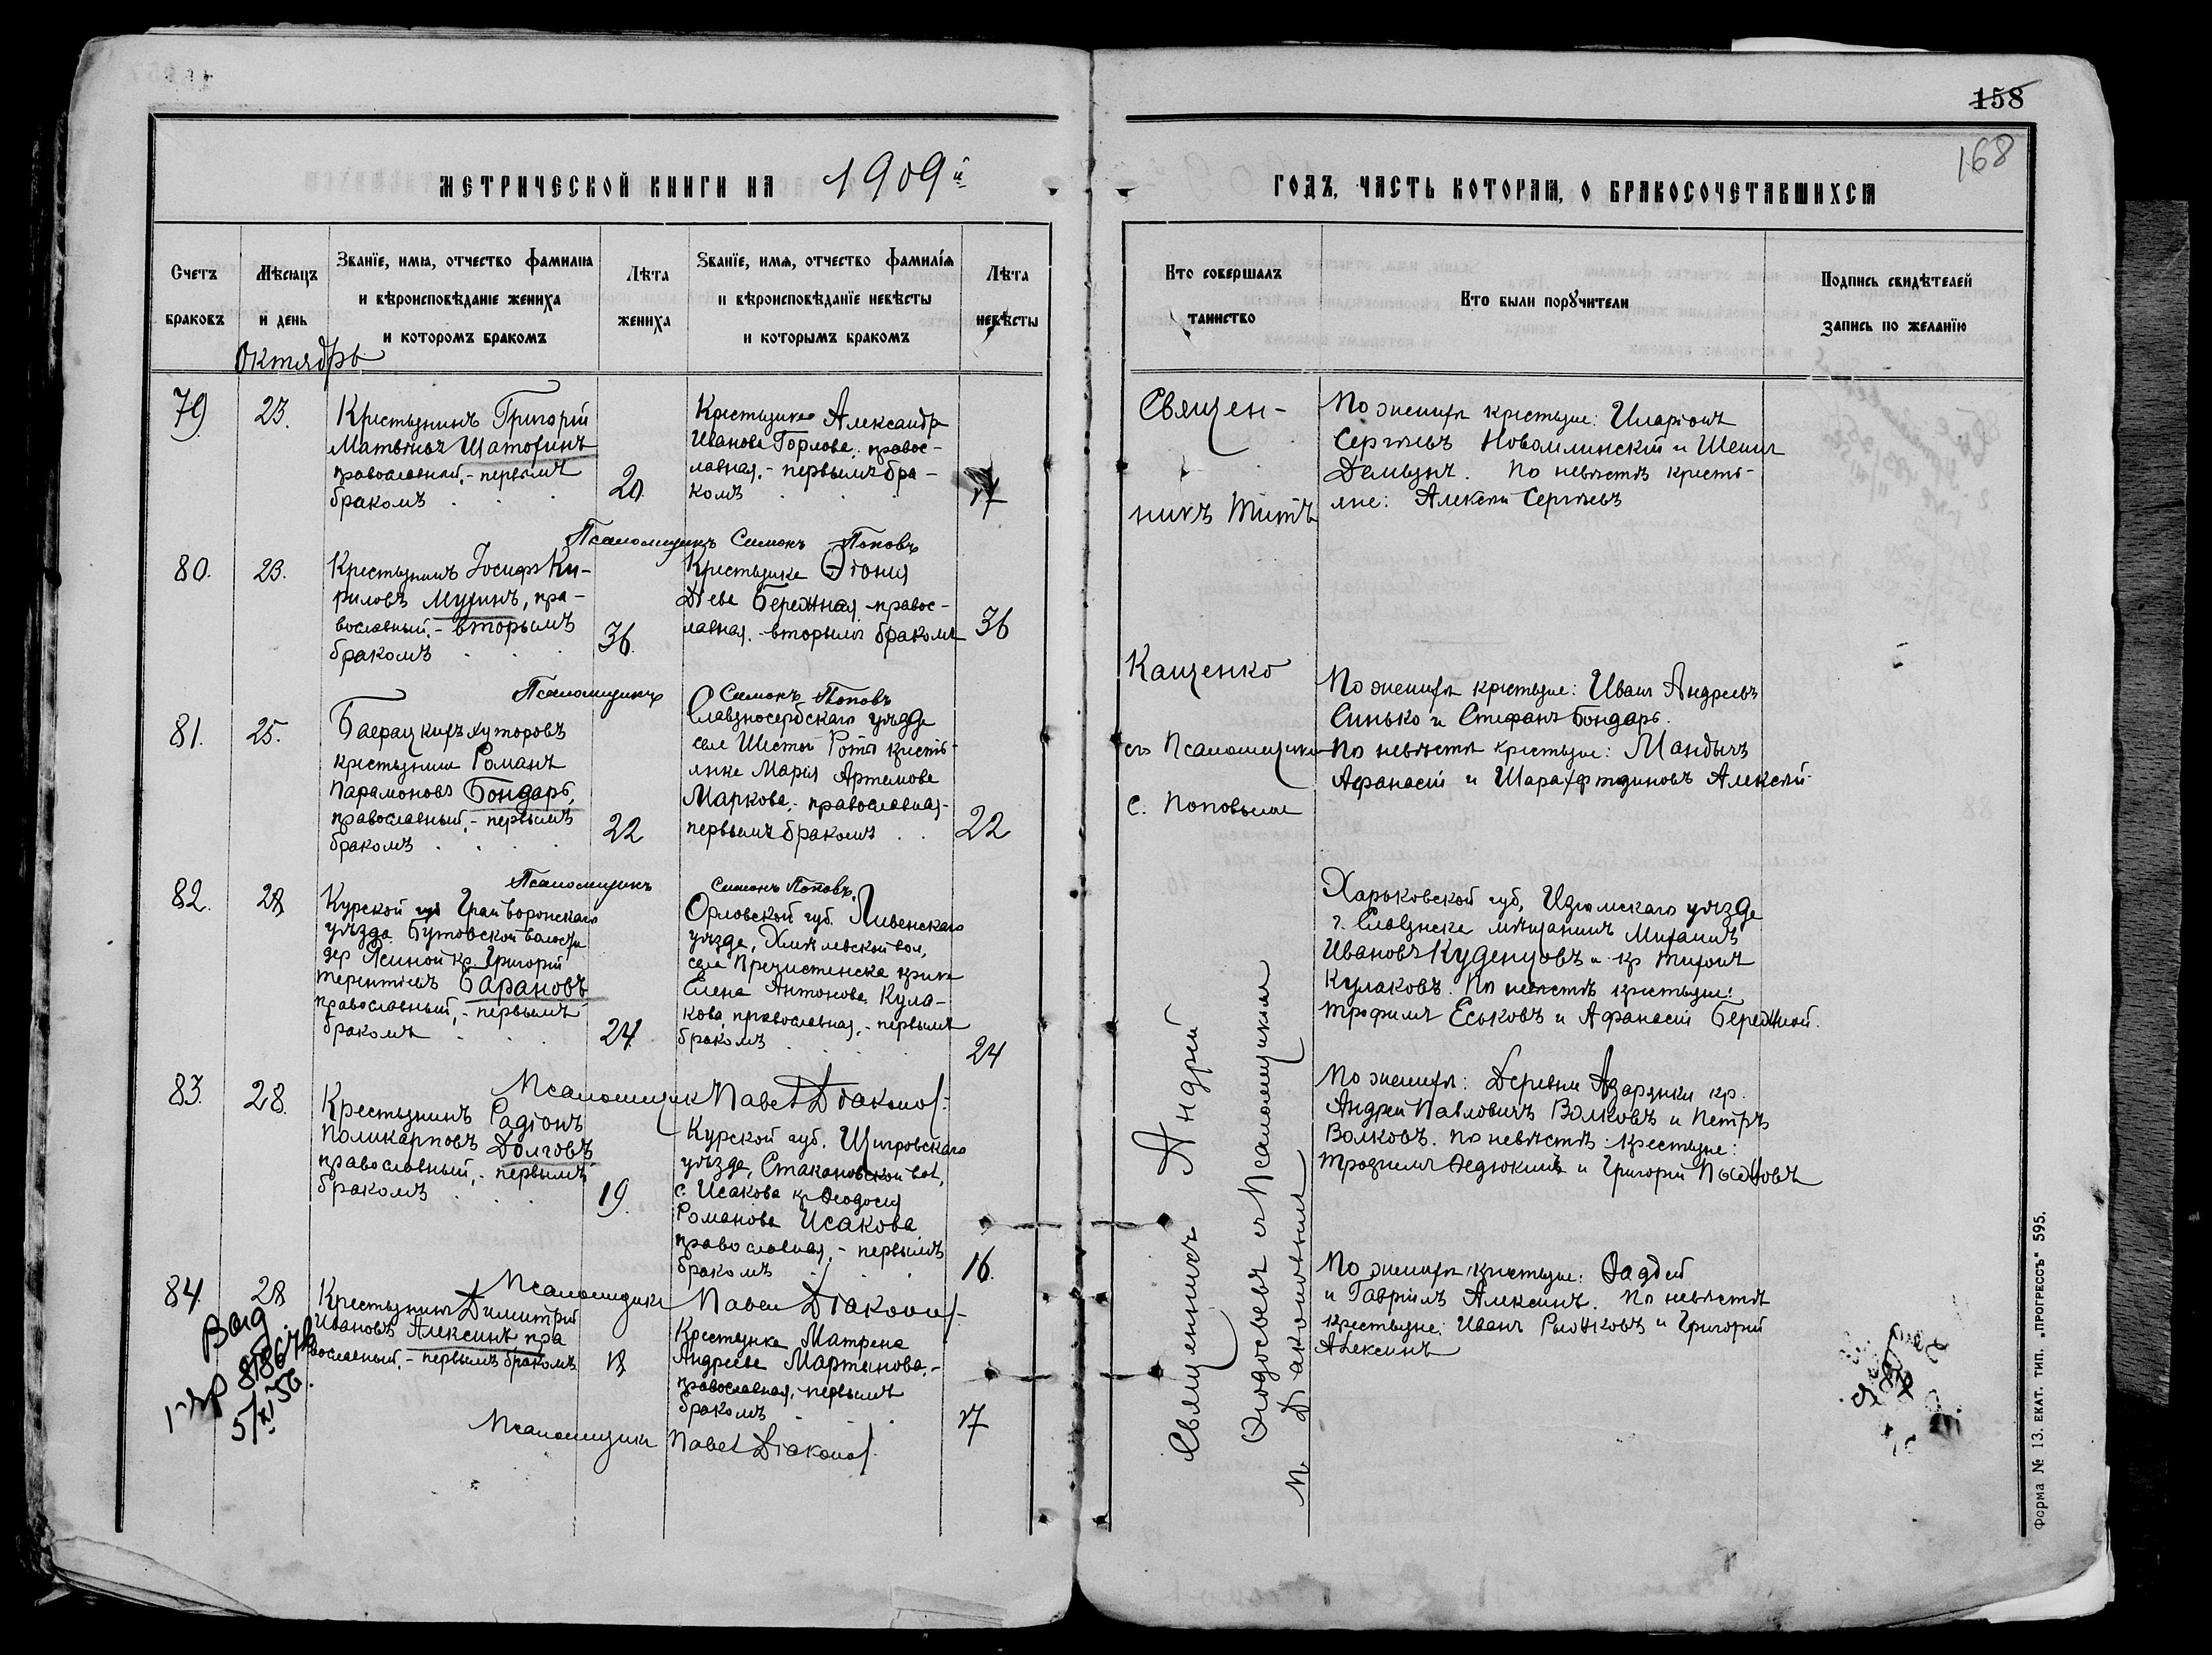 158
168
МЕТРИЧЕСКОЙ КНИГИ НА 1909й
ГОДЪ, ЧАСТЬ КОТОРАЯ, О БРАКОСОЧЕТАВШИХСЯ
Счетъ браковъ
Мѣсяцъ и день
Званїе, имя, отчество фамилия
и вѣроисповѣданіе жениха
и которомъ бракомъ
Лѣта жениха
Званїе, имя, отчество фамилїя
и вѣроисповѣданїе невѣсты
и которымъ бракомъ
Лѣта невѣсты
Кто совершалъ таинство
Кто были порꙋчители
Подпись свидѣтелей
запись по желанїю
Октябрь
79
23.
Крестьянинъ Григорій
Матвѣевъ Шаторинъ
православный, - первымъ
бракомъ
20.
Крестьянка Александра
Иванова Горлова, правос-
лавная, - первымъ бра-
комъ
17
Псаломщикъ Симонъ Поповъ
80.
23.
Крестьянинъ Іосифъ Ки-
риловъ Мухинъ, пра-
вославный, - вторымъ
бракомъ
36.
Крестьянка
Бережная правос-
лавная, - вторымъ бракомъ
36
Псаломщикъ Симонъ Поповъ
81.
25.
хуторовъ
крестьянинъ Романъ
Парамоновъ Бондарь,
православный, - первымъ
бракомъ
22
Славяносербскаго уѣзда
села Шестой Роты кресть-
янка Марія Артемова
Маркова, - православная -
первымъ бракомъ
22
Псаломщикъ Симонъ Поповъ
82.
28
Курской губ Грайворонскаго
уѣзда Бутовской волости
дер Ясиной кр. Григорій
Терентіевъ Барановъ
православный, - первымъ
бракомъ
24.
Орловской губ. Ливенскаго
уѣзда, вол,
села Пречистенска кр-ка
Елена Антонова Кула-
кова, православная, - первымъ
бракомъ
24
Псаломщик Павел Діаконов
83.
28.
Крестьянинъ Радіонъ
Поликарповъ Долговъ
православный, - первымъ
бракомъ
19.
Курской губ. Щигровскаго
уѣзда, Стакановской вол,
с. Исакова кр Ѳеодосія
Романова Исакова
православная, - первымъ
бракомъ
16.
Псаломщикъ Павел Діаконов
84.
28
Крестьянинъ Димитрій
Ивановъ Алексинъ пра
вославный, - первымъ бракомъ
18
Крестьянка Матрена
Андреева Мартынова, -
православная, - первымъ
бракомъ
17
Псаломщикъ Павел Діаконов
5/XI 56.
Священ-
никъ Титъ
Кащенко
съ Псаломщикомъ
С. Поповымъ
Священникъ Андрей
Ѳеодосьевъ съ Псаломщикомъ
П. Діаконовымъ
По женихѣ крестьяне: Иларіонъ
Сергѣевъ Новомлинскій и
Демьянъ. По невѣстѣ кресть-
яне: Алексѣй Сергѣевъ
По женихѣ крестьяне: Иванъ Андреевъ
Синько и Стефанъ Бондарь.
По невѣстѣ крестьяне: Мандычъ
Афанасій и Шарахфтдиновъ Алексѣй
Харьковской губ, Изюмскаго уѣзда
г. Славянска мѣщанинъ Михаилъ
Ивановъ Куденцовъ и кр Тихонъ
Кулаковъ. По невѣстѣ крестьяне:
Трофимъ Еськовъ и Афанасій Бережной.
По женихѣ: Деревни кр.
Андрей Павловичъ Волковъ и Петръ
Волковъ. По невѣстѣ: крестьяне:
Трофимъ Ѳедюкинъ и Григорій
По женихѣ крестьяне: Ѳаддей
и Гавріилъ Алексинъ. По невѣстѣ
крестьяне: Иванъ и Григорій
Алексинъ
Форма № 13. ЕКАТ. ТИП. „ПРОГРЕССЪ" 595.